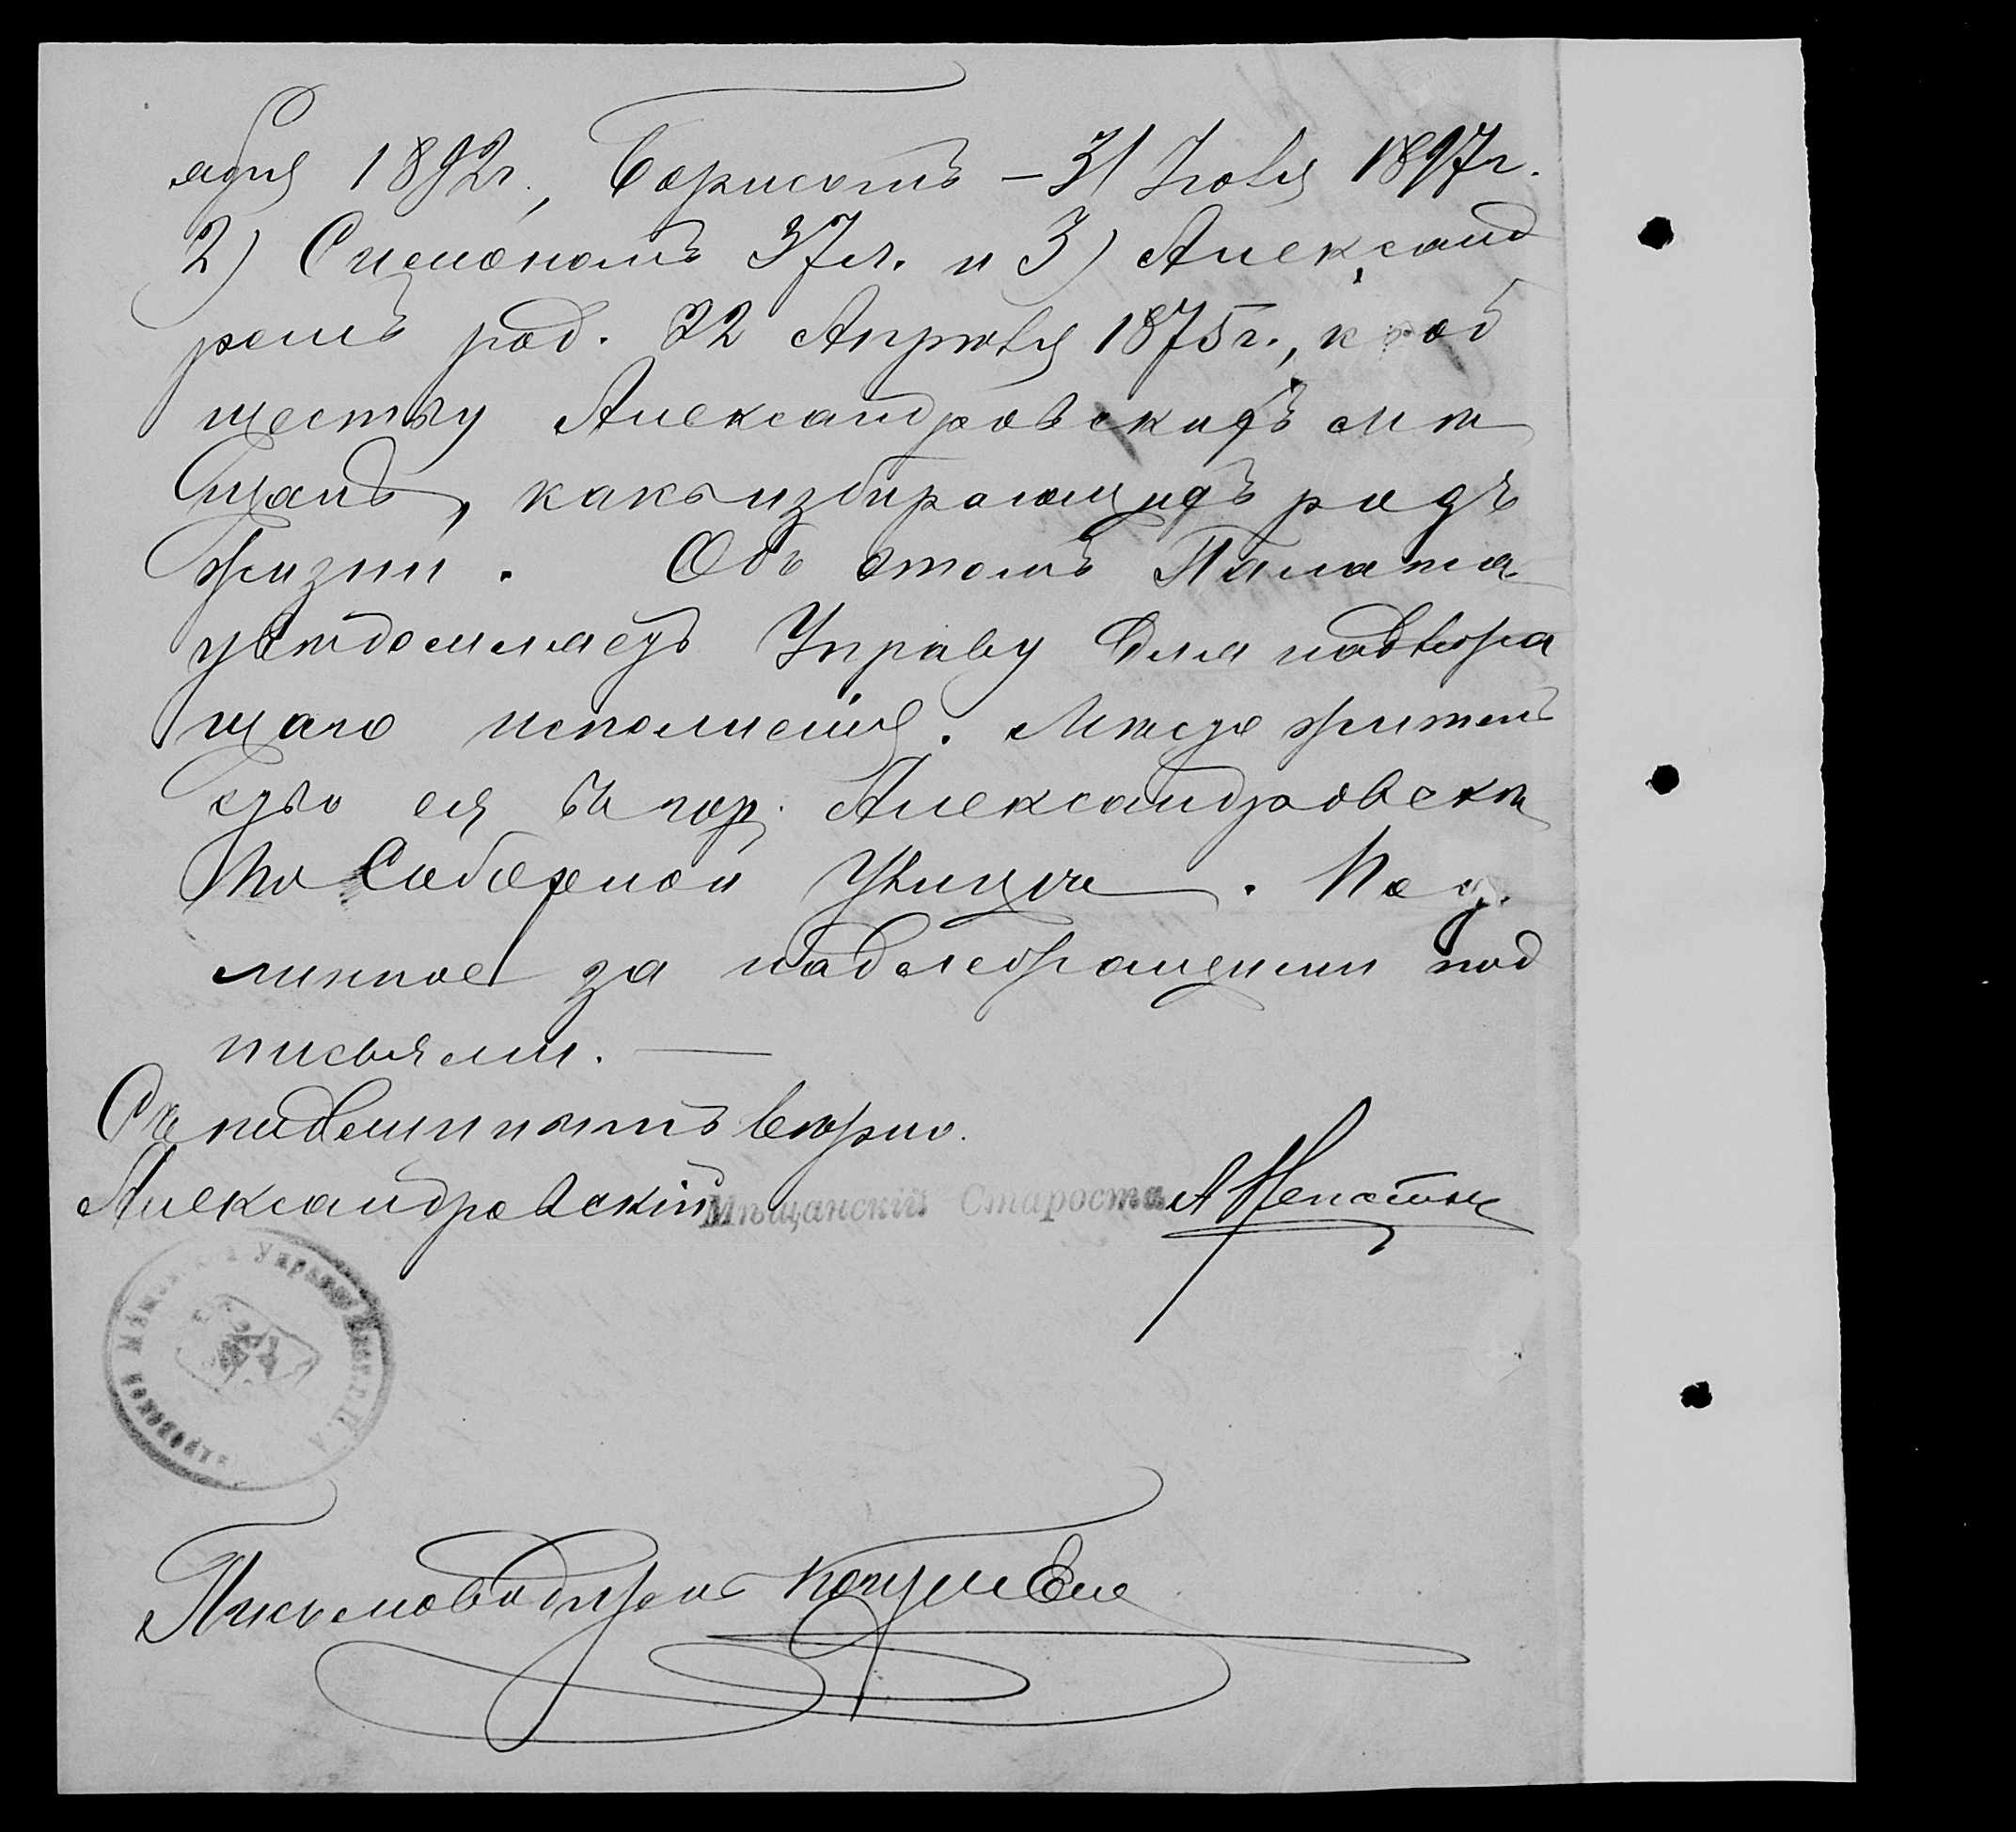 ября 1892г., Борисомъ – 31 Іюля 1897г.
2) Симономъ 37л. и 3) Александ
ромъ род. 22 Апрѣля 1875г., к об
ществу Александровскихъ мѣ
щанъ, какъ избирающихъ родъ
жизни. Объ этомъ Палата
увѣдомляетъ Управу для надлежа
щаго исполненія. Мѣсто житель
ство ея въ гор. Александровскѣ
по Соборной улицѣ. Под
линное за надлежащими под
писями. —
Съ подлиннымъ вѣрно.
Александровскій Мѣщанскій Староста
Управы
Письмоводитель